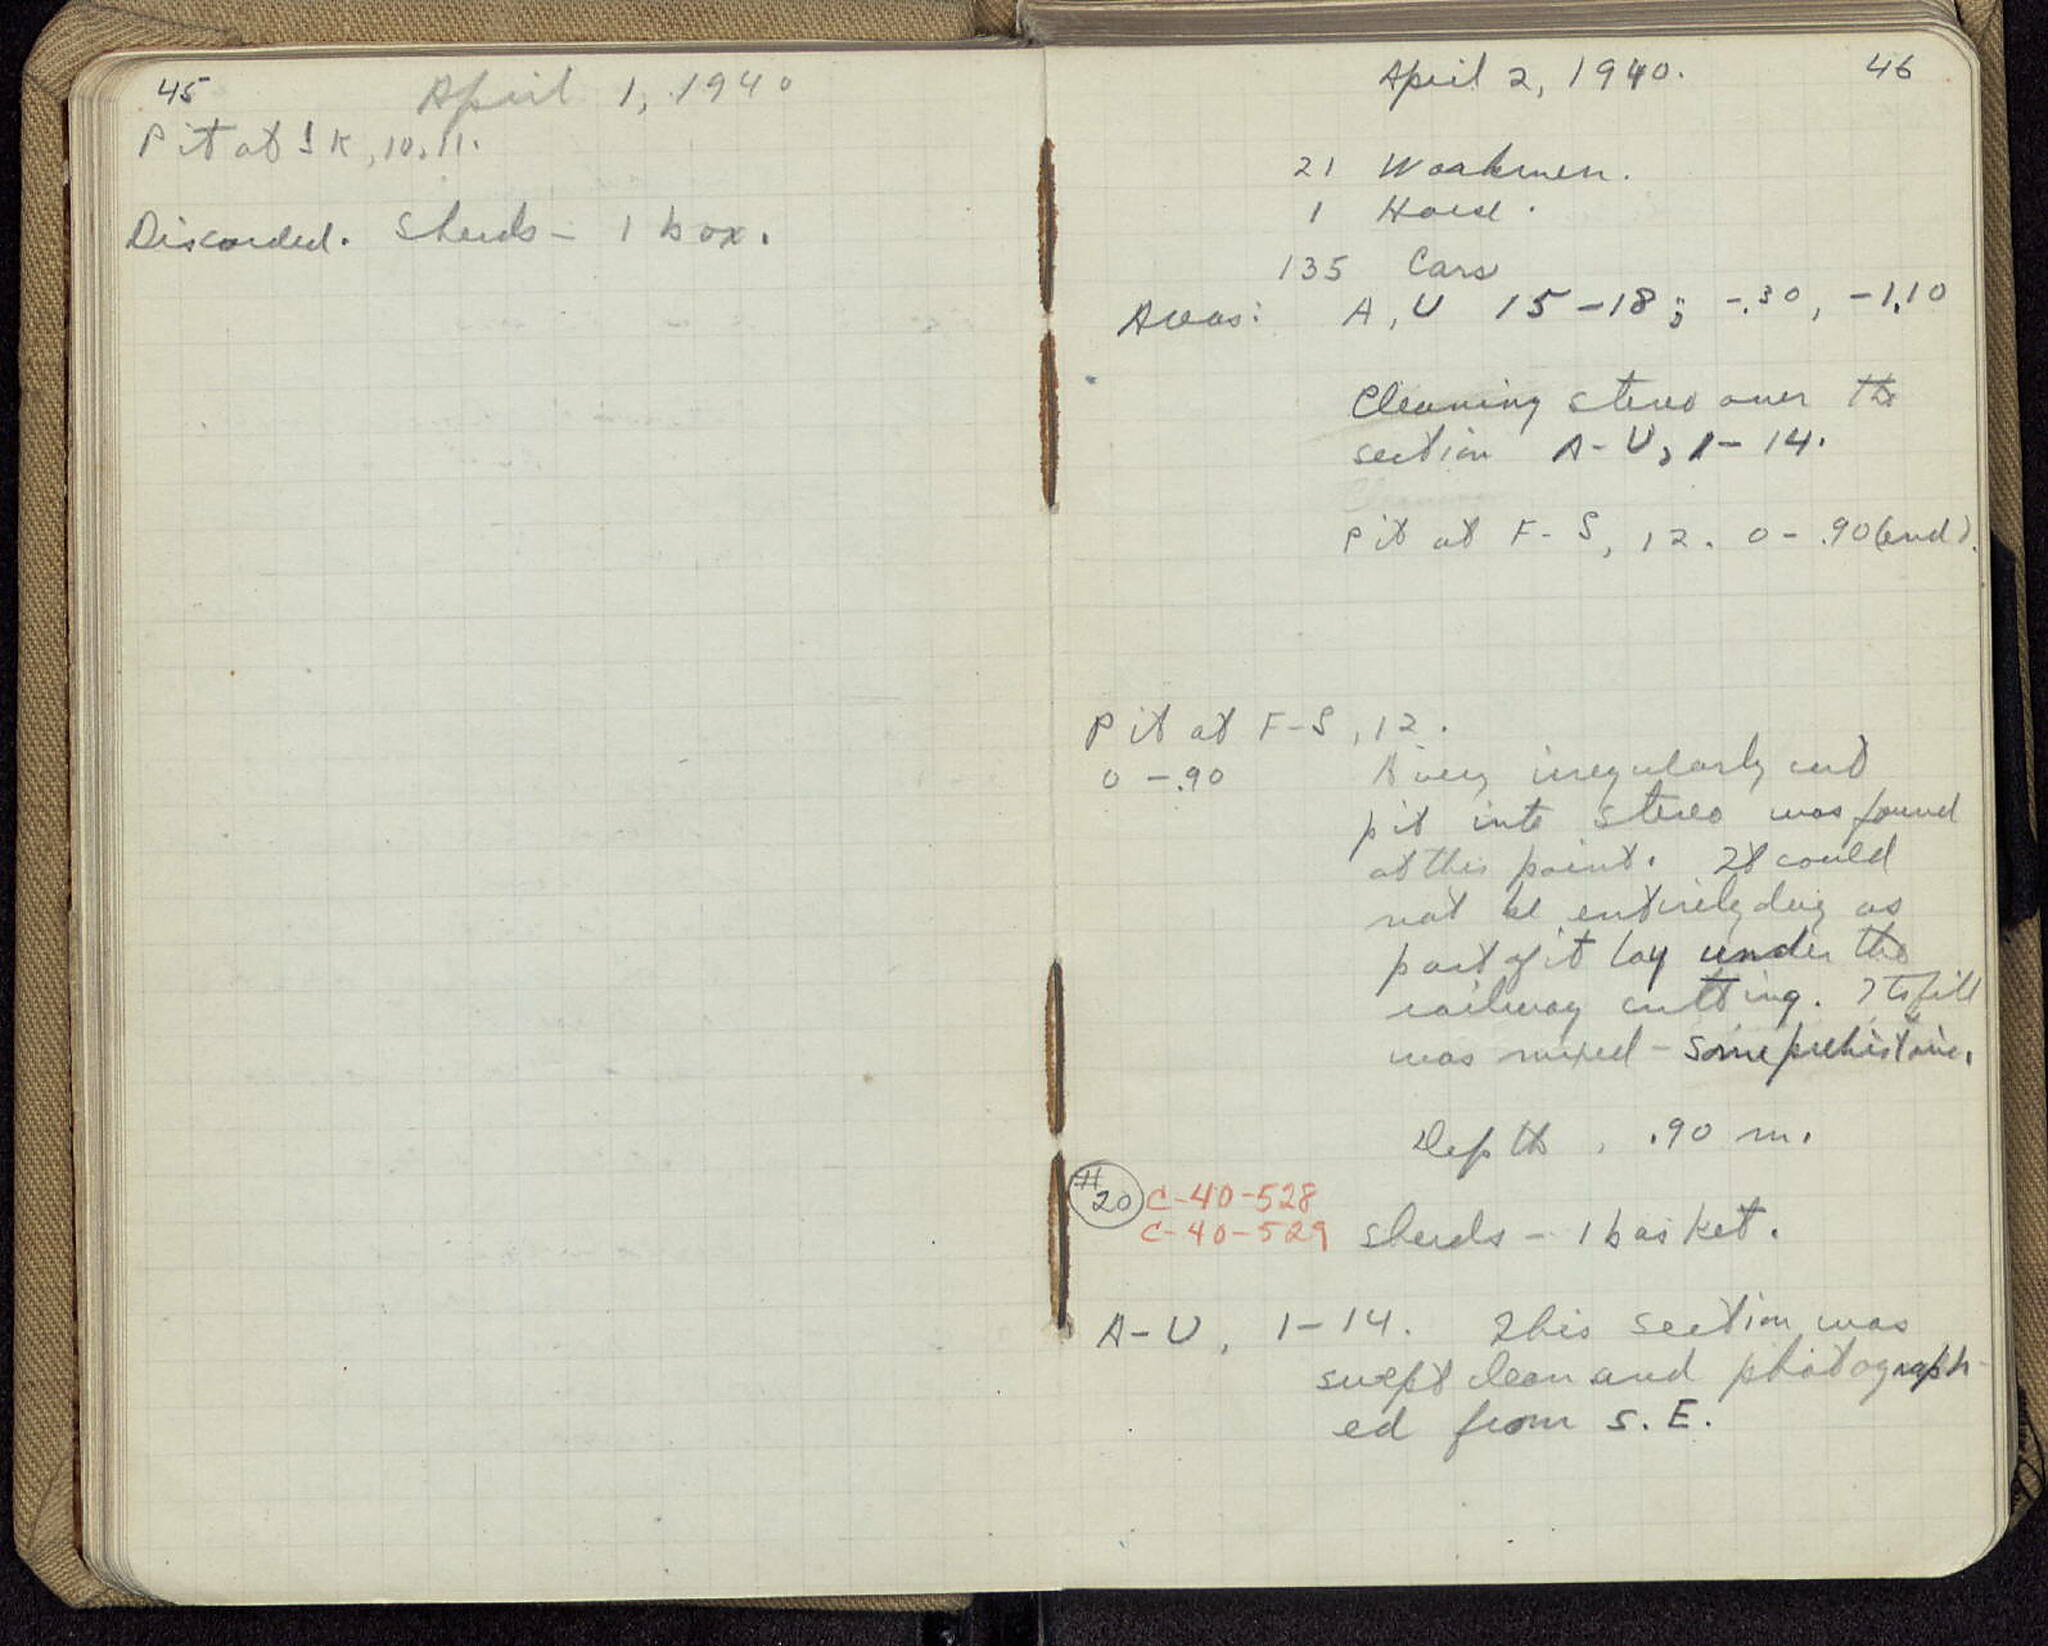 45
April 1, 1940
Pit at J K, 10, 11.
Discarded. Sherds - 1 box.
April 2, 1940.
46
21 Workmen.
1 Horse.
135 Cars
Areas: A, U 15-18; -.30, -1.10
Cleaning stereo over the
section A-U, 1-14.
Pit at F-S, 12. 0 - .90 (end).
Pit at F-S, 12.
0 - .90 A very irregularly cut
pit into stereo was found
at this point. It could
not be entirely dug as
part of it lay under the
railway cutting. Its fill
was mixed - some prehistoric.
Depth, .90 m.
#20 C-40-528
C-40-529 Sherds - 1 basket.
A-U, 1-14. This section was
swept clean and photograph-
ed from S. E.